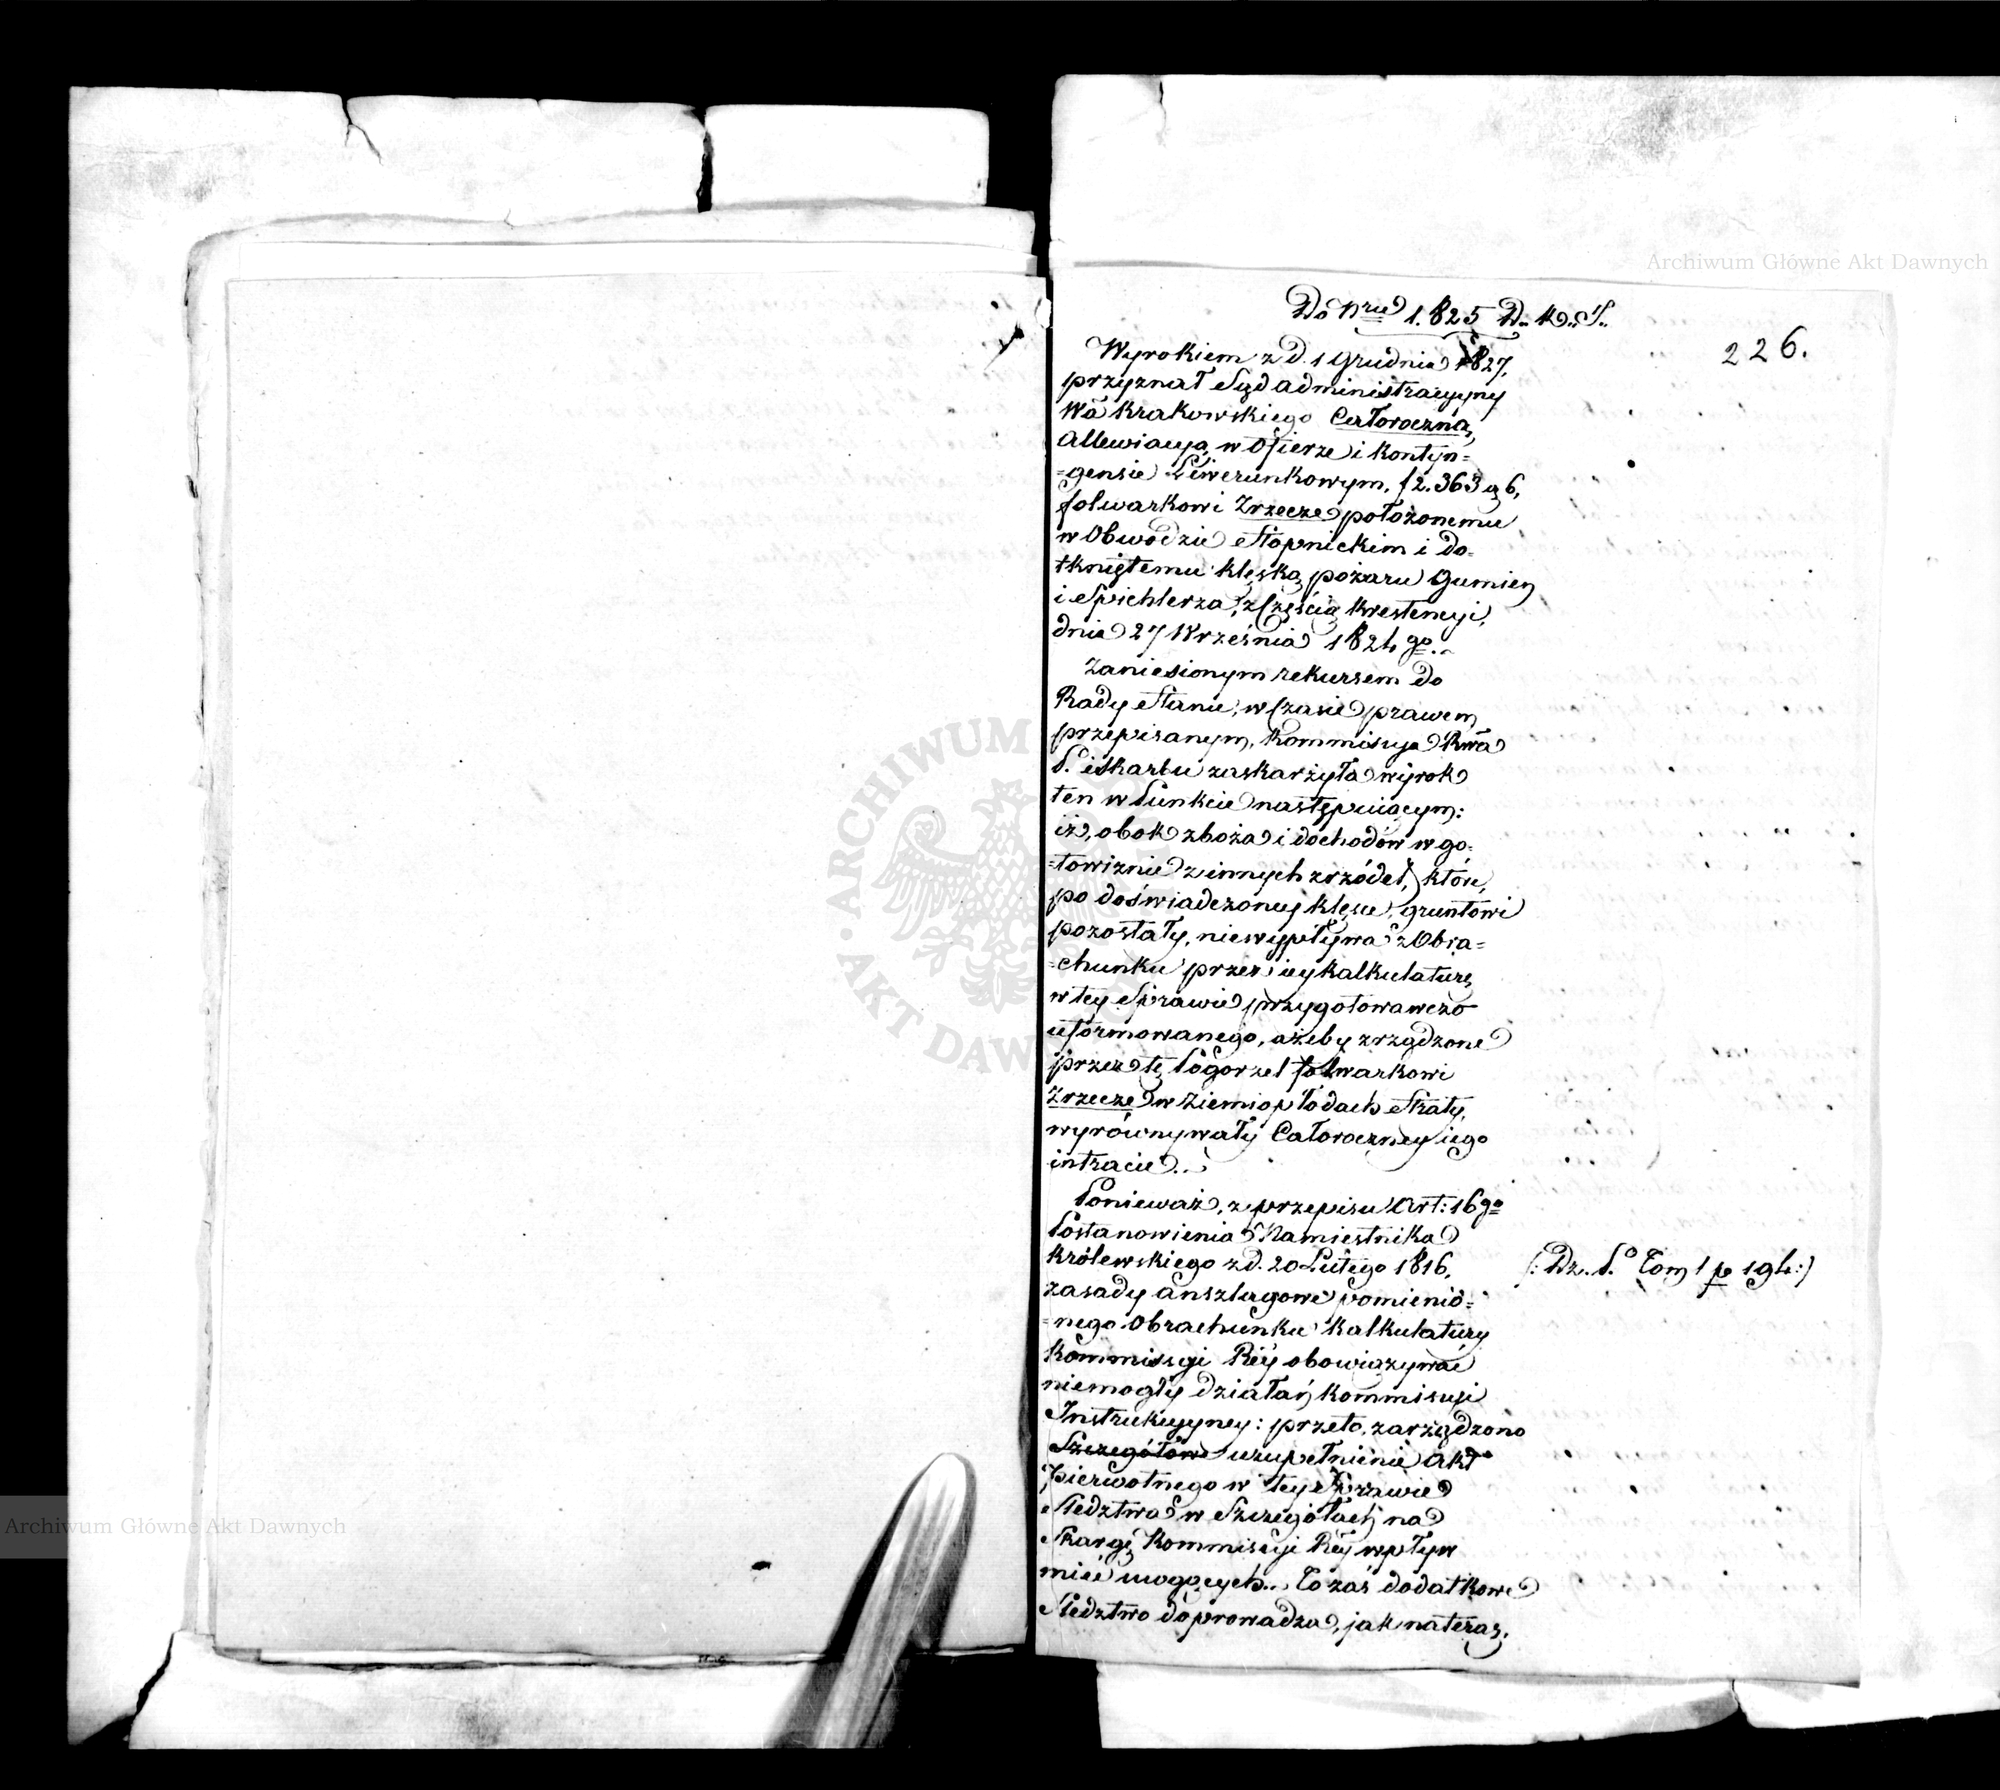 Do Nru 1.825 D. K. S.
226.
Wyrokiem z d. 1 Grudnia 1827,
przyznał Sąd administracyjny
Wa Krakowskiego Całoroczną
allewiacyą w Ofierze i kontyn=
=gensie Liwerunkowym, f 2.363 g 6,
folwarkowi Zrzecze położonemu
w Obwodzie Stopnickim i do=
tkniętemu klęską pożaru Gumien
i Spichlerza, z Częścią krestencyi,
dnia 27 Września 1824 go.
Zaniesionym rekursem do
Rady Stanu, w Czasie prawem
przepisanym, Kommissya Rwa
P. i Skarbu zaskarżyła wyrok
ten w Punkcie następuiącym:
iż, obok zboża i dochodów w go=
=towiznie z innych zrzódeł, które,
po doświadczoney klęsce, gruntowi
pozostały, niewypływa z Obra=
=chunku przez iey kalkulaturę
w tey Sprawie przygotowawczo
uformowanego, ażeby zrządzone
przez tę Pogorzel folwarkowi
Zrzecze w Ziemiopłodach Straty,
wyrównywały Całoroczney iego
intracie.
Ponieważ, z przepisu Art: 16go
Postanowienia Namiestnika
Królewskiego z d. 20 Lutego 1816,
(: Dz. P. Tom 1 p 194:)
zasady anszlagowe pomienio=
=nego Obrachunku kalkulatury
Kommisyi Rey obowiązywać
niemogły działań Kommisyi
Instrukcyyney: przeto, zarządzono
Szczegółowe uzupełnienie akt
pierwotnego w tey Sprawie
Śledztwa w Szczegółach na
Skargę Kommisyi Rey wpływ
mieć mogących. To zaś dodatkowe
Śledztwo doprowadza, jak nateraz,
Archiwum Główne Akt Dawnych
Archiwum Główne Akt Dawnych
ARCHIWUM
AKT DAW